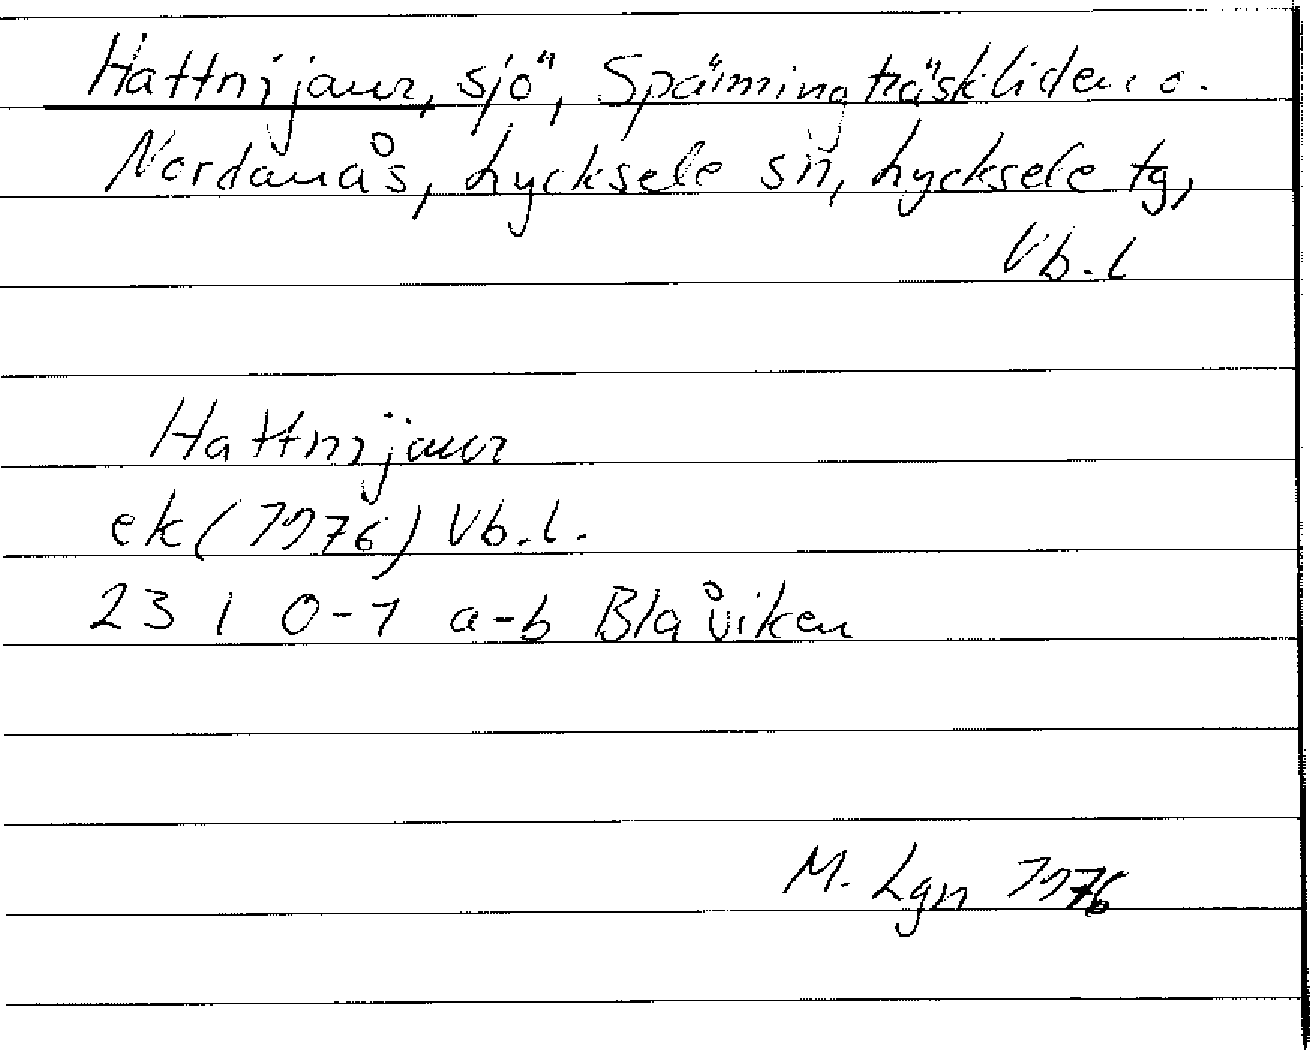 Hattnijaur, sjö, Spänningträskliden o.
Nordanås, Lycksele sn, Lycksele tg,
Vb. l
Hattnijaur
ek (1976) Vb. l.
23 I 0-1 a-b Blåviken
M. Lgn 1976